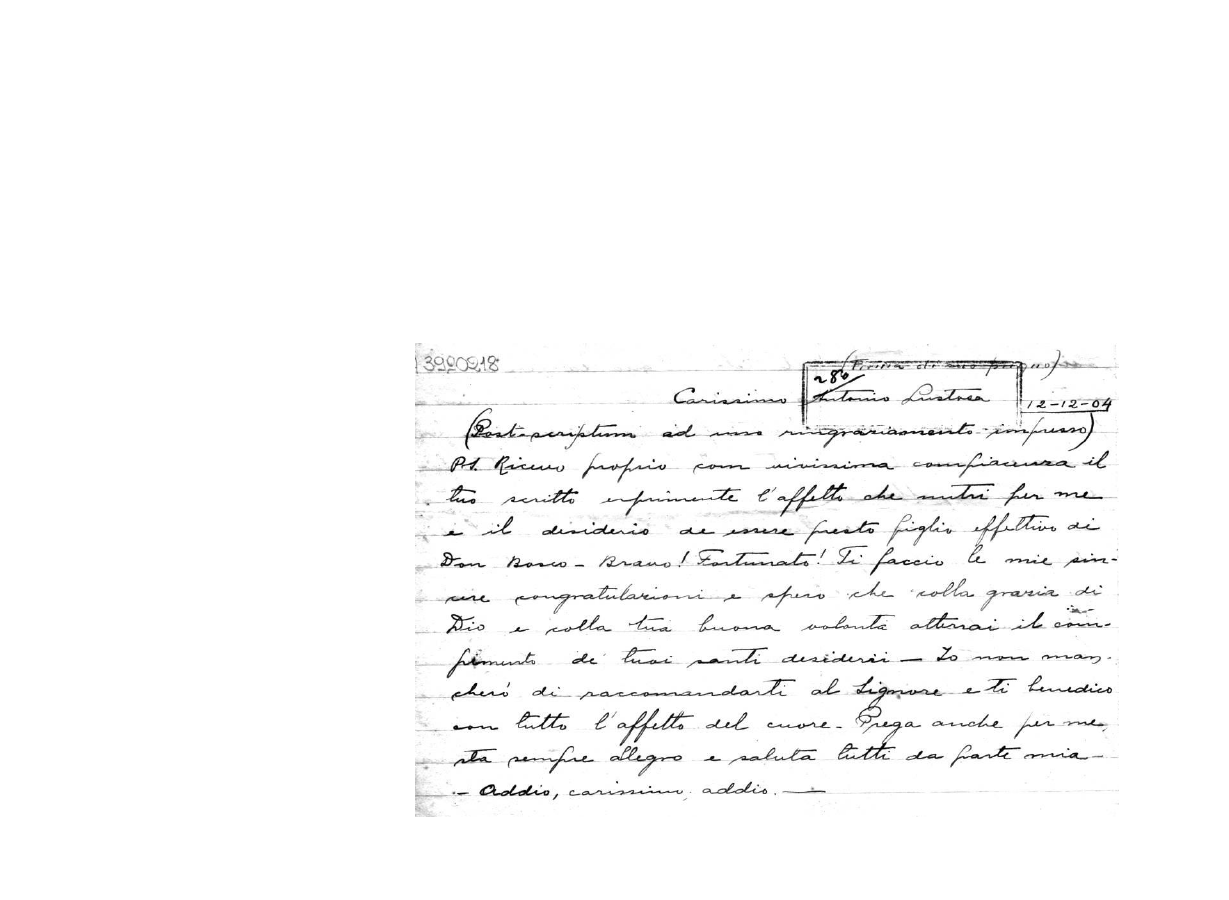 3990918
(Firma di suo pugno)
286
Carissimo Antonio Lustosa
12-12-04
(Post-scriptum ad uno ringraziamento impresso)
P.S. Ricevo proprio com vivissima compiacenza il
tuo scritto esprimente l'affetto che nutri per me
e il desiderio de essere presto figlio effettivo di
Don Bosco - Bravo! Fortunato! Ti faccio le mie sin-
cere congratulazioni e spero che colla grazia di
Dio e colla tua buona volontà atterrai il com-
pimento de' tuoi santi desiderii — Io non man-
cheró di raccomandarti al Signore e ti benedico
con tutto l'affetto del cuore - Prega anche per me,
sta sempre allegro e saluta tutti da parte mia -
- Addio, carissimo, addio. —